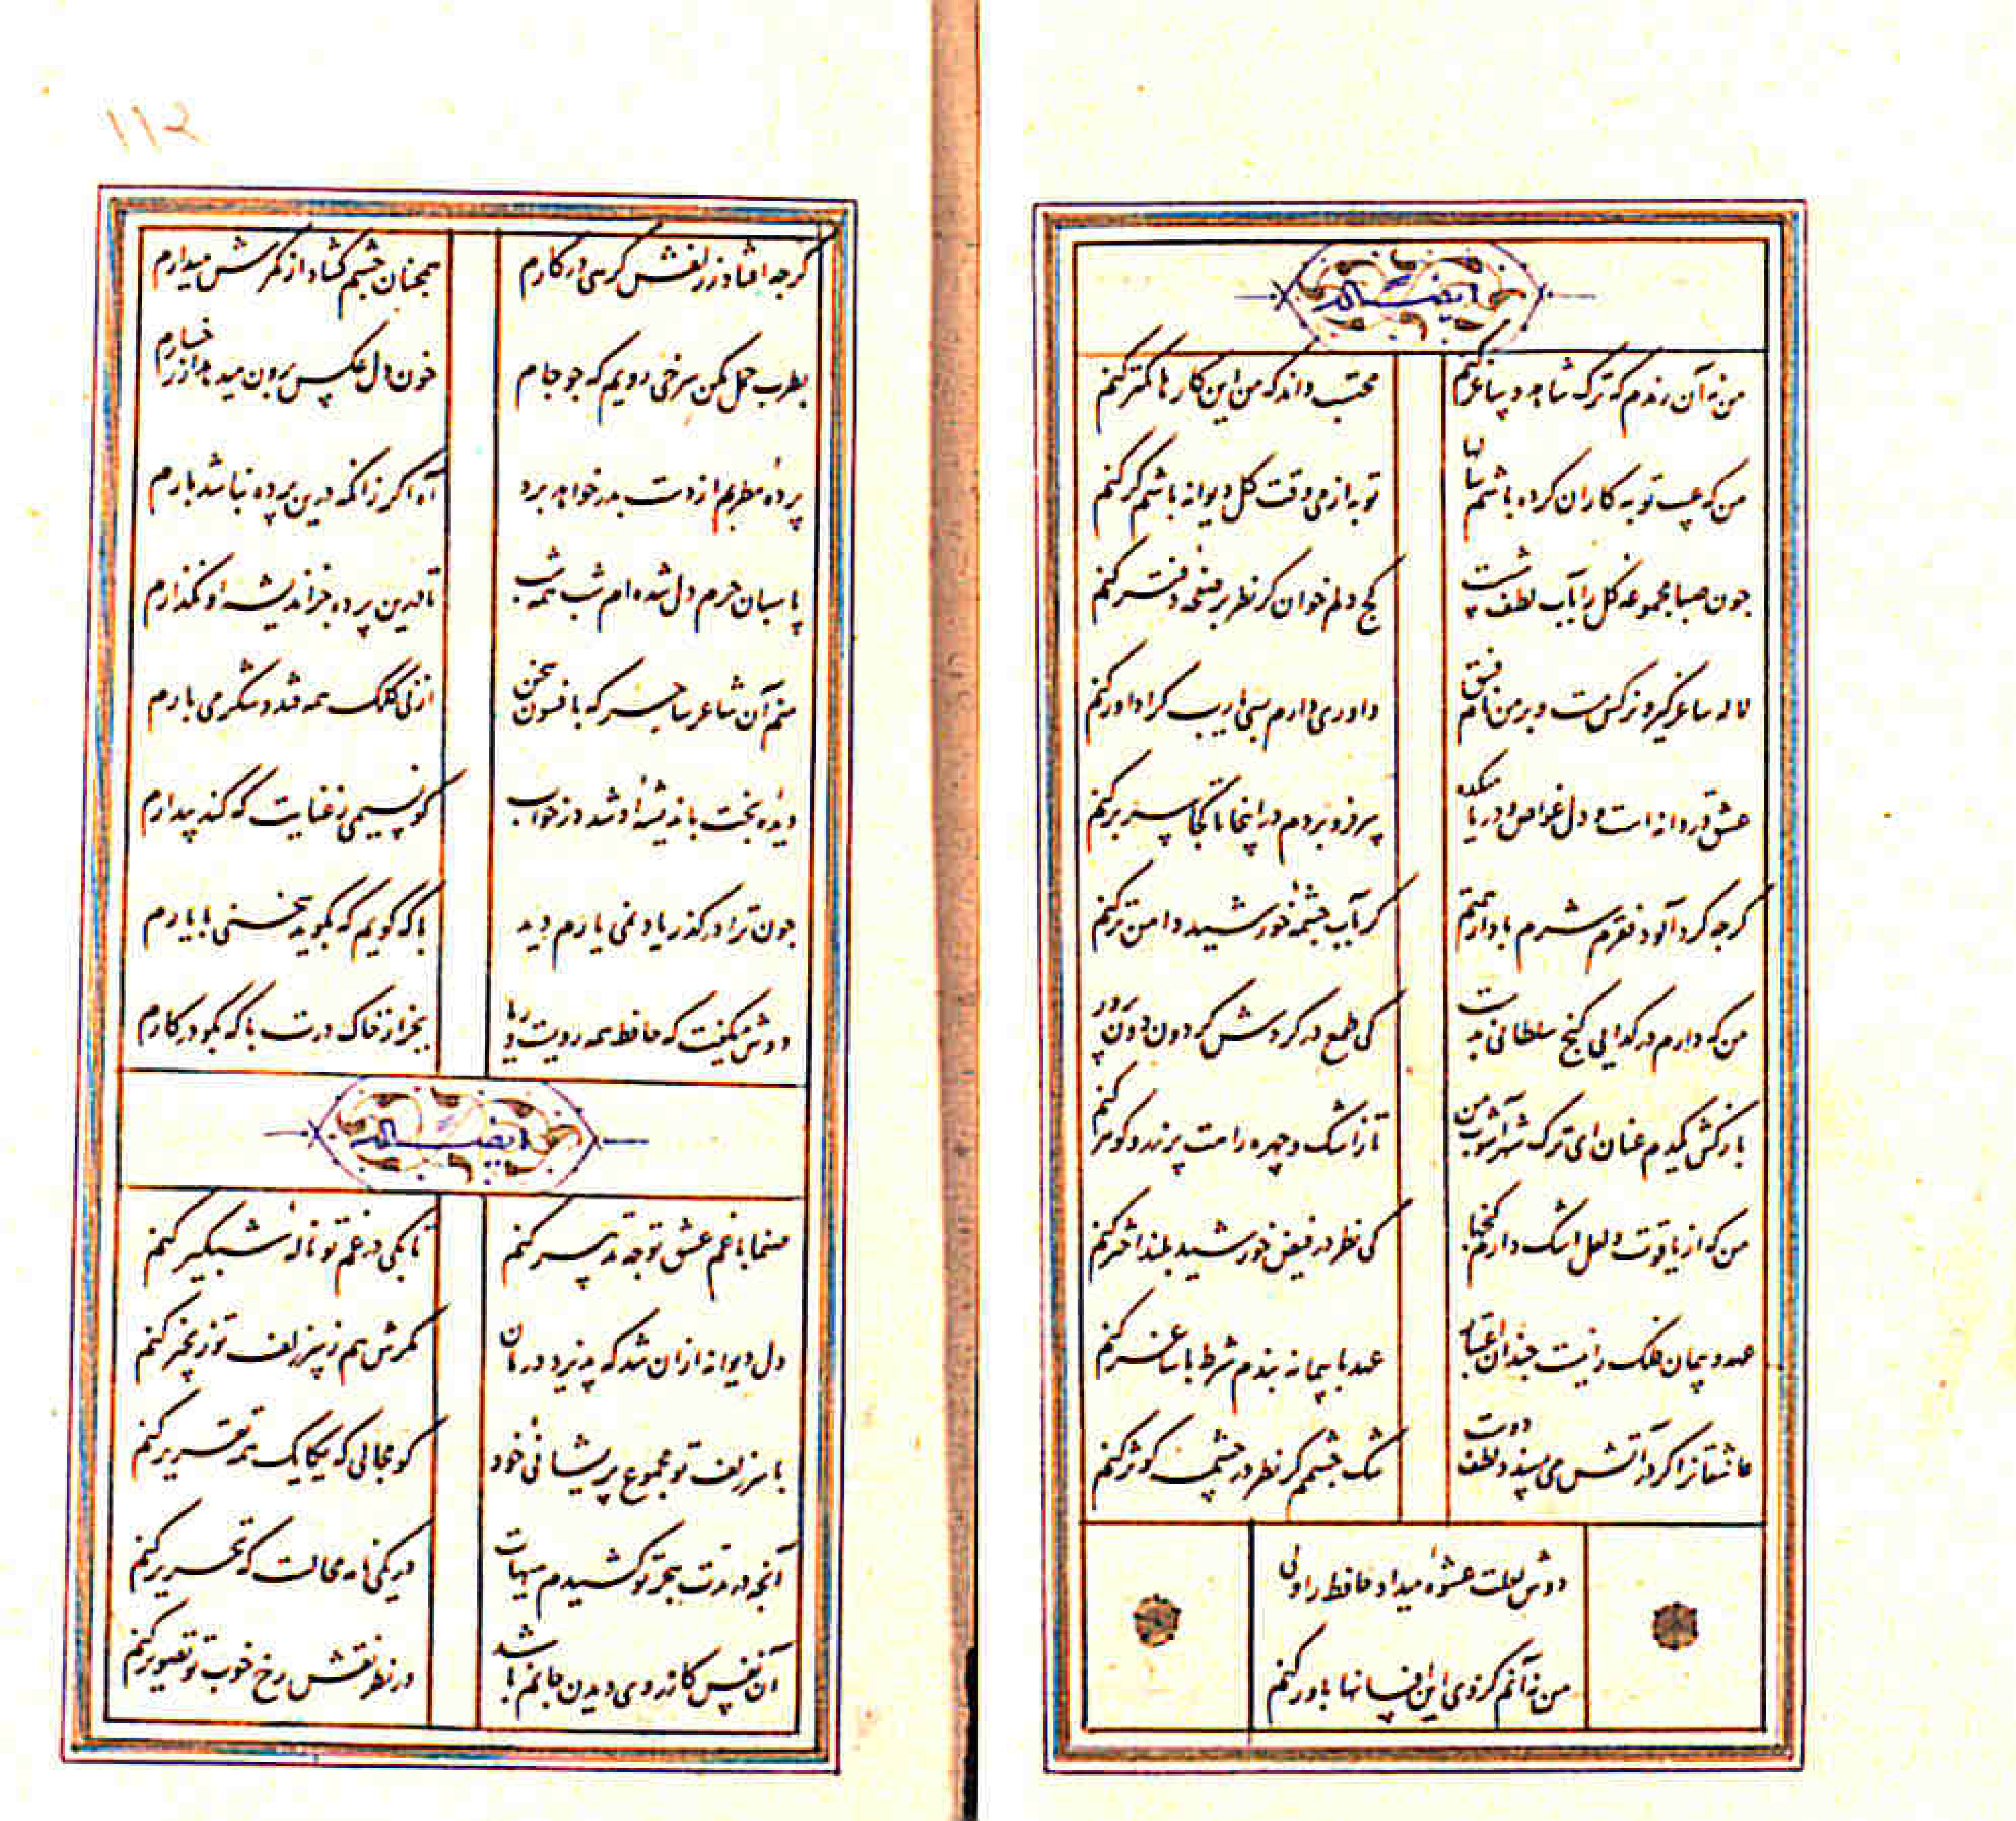 ایضاله
من نه آن رندم که ترک شاهد و ساغر کنم
محتسب داند که من این کارها کمتر کنم
من که عیب توبه کاران کرده باشم سالها
توبه از می وقت کل دیوانه باشم کر کنم
جون صبا مجموعه کل را بآب لطف شست
کج دلم خوان کر نظر بر صفحه دفتر کنم
لاله ساغر کیر و نرکس مست و بر من نام فسق
داوری دارم بسی یارب کرا داور کنم
عشق دردانه است و دل غواص و دریا میکده
سر فرو بردم در اینجا تا کجا سر بر کنم
کرجه کرد آلود فقرم شرم باد از همتم
کر بآب جشمه خورشید دامن تر کنم
من که دارم در کدایی کنج سلطانی بدست
کی طمع در کردش کردون دون پرور کنم
باز کش یکدم عنان ای ترک شهر آشوب من
تا ز اشک و چهره راهت پر زر و کوهر کنم
من که از یاقوت و لعل اشک دارم کنجها
کی نظر در فیض خورشید بلند اختر کنم
عهد و پیمان فلک را نیست جندان اعتبار
عهد با پیمانه بندم شرط با ساغر کنم
عاشقانرا کر در آتش می پسندد لطف دوست
تنک جشمم کر نظر در چشمه کوثر کنم
دوش لعلت عشوه میداد حافظ را ولی
من نه آنم کز وی این افسانها باور کنم
۱۱۲
کرجه افتاد ز زلفش کرهی در کارم
همجنان جشم کشاد از کرمش میدارم
بطرب حمل مکن سرخی رویم که جو جام
خون دل عکس برون میدهد از رخسارم
پرده مطربم از دست بدر خواهد برد
آه اکر زانکه درین پرده نباشد بارم
پاسبان حرم دل شده ام شب همه شب
تا درین پرده جز اندیشه او نکذارم
منم آن شاعر ساحر که بافسون سخن
از نی کلک همه قند و شکر می بارم
دیده بخت بافسانه او شد در خواب
کو نسیمی ز عنایت که کند بیدارم
جون ترا در کذر یاد نمی یارم دید
با که کویم که بکوید سخنی با یارم
دوش میکفت که حافظ همه رویست و ریا
بجز از خاک درت با که بکو در کارم
ایضاله
صنما با غم عشق تو جه تدبیر کنم
تا بکی در غم تو ناله شبکیر کنم
دل دیوانه از آن شد که پذیرد درمان
مکرش هم ز سر زلف تو زنجیر کنم
با سر زلف تو مجموع پریشانی خود
کو مجالی که یکایک همه تقریر کنم
آنجه در مدت هجر تو کشیدم هیهات
در یکی نامه محالست که تحریر کنم
آن نفس کارزوی دیدن جانم باشد
در نظر نقش رخ خوب تو تصویر کنم